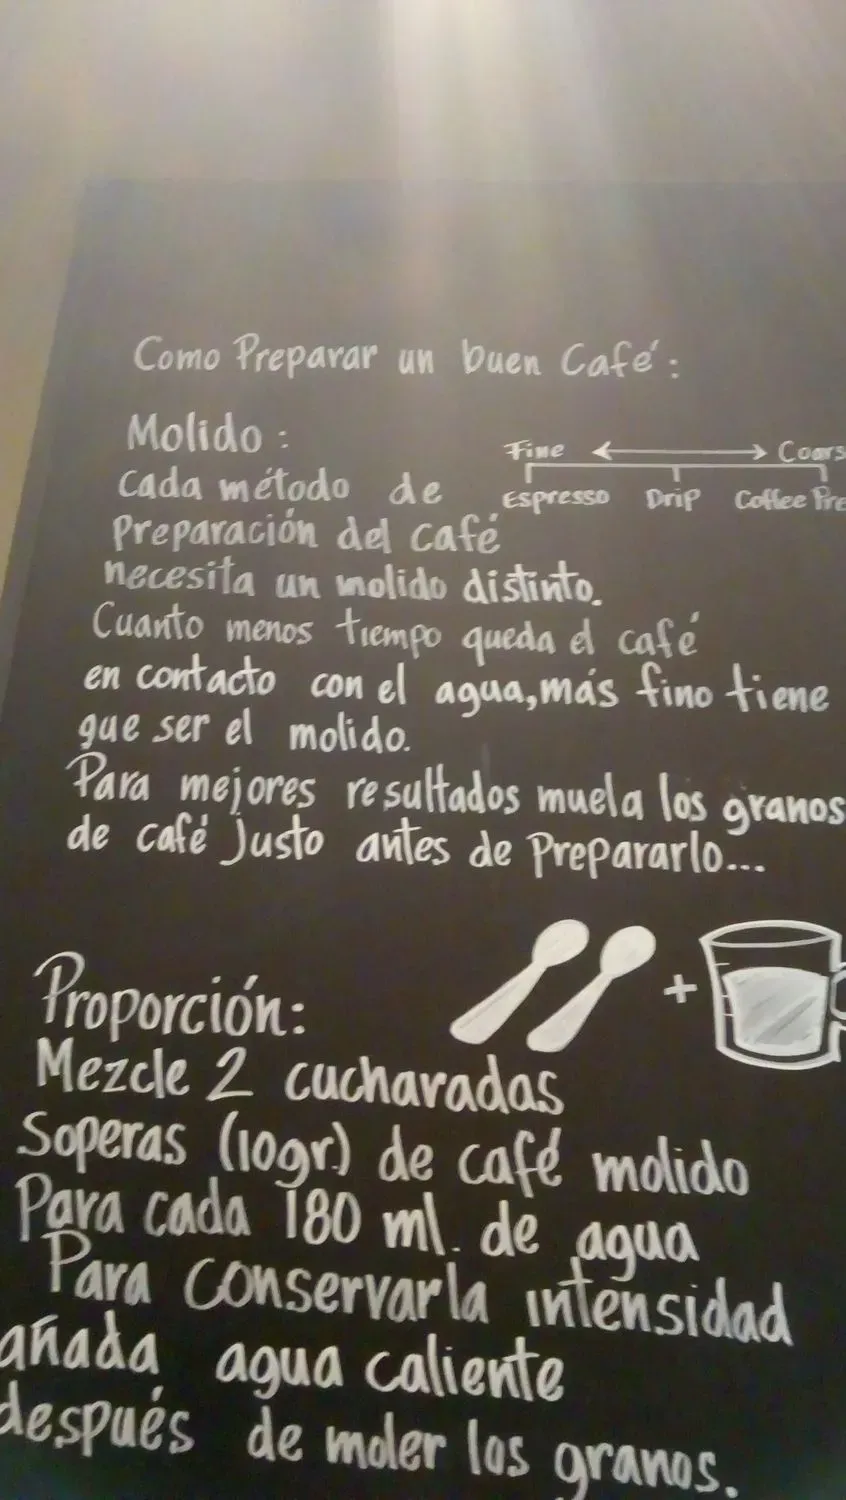 Como Preparar un buen Café:
Molido:
Fine Coars
Espresso Drip Coffee Pre
Cada método de
Preparación del café
necesita un molido distinto.
Cuanto menos tiempo queda el café
en contacto con el agua, más fino tiene
que ser el molido.
Para mejores resultados muela los granos
de café justo antes de Prepararlo...
+
Proporción:
Mezcle 2 cucharadas
Soperas (10gr.) de café molido
Para cada 180 ml. de agua
Para conservar la intensidad
añada agua caliente
después de moler los granos.